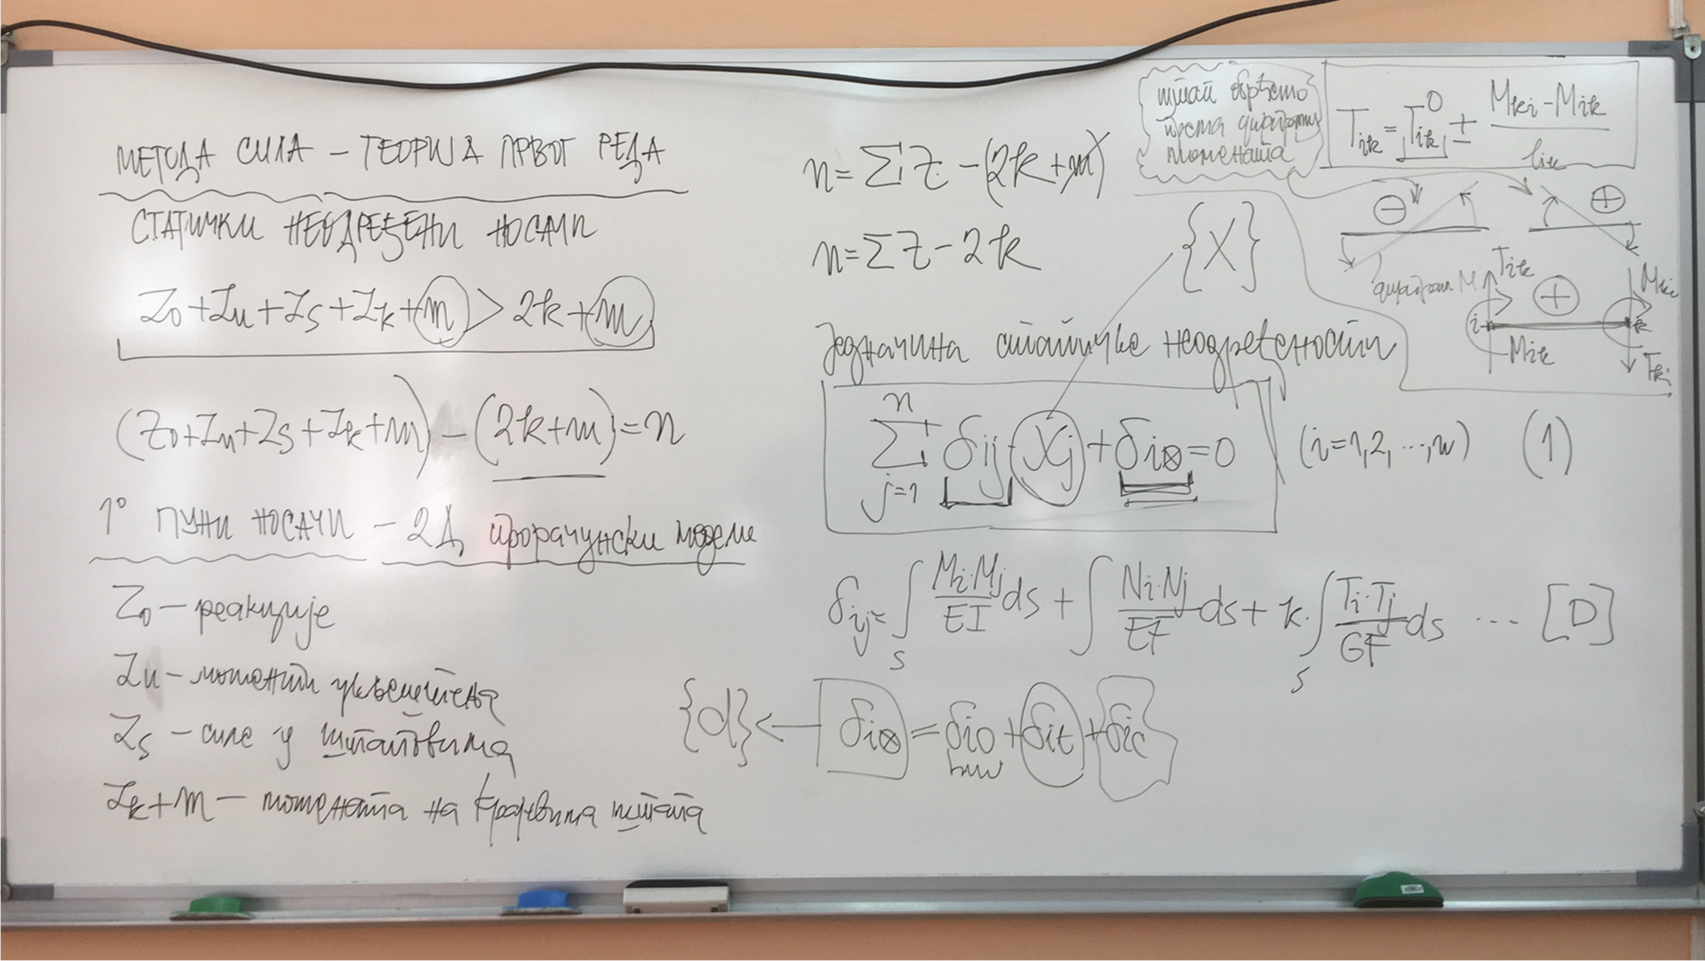 МЕТОДА СИЛА – ТЕОРИЈА ПРВОГ РЕДА
СТАТИЧКИ НЕОДРЕЂЕНИ НОСАЧИ
Zo+Zu+Zs+Zk+m > 2k+m
(Zo+Zu+Zs+Zk+m) – (2k+m) = n
1° ПУНИ НОСАЧИ – 2Д прорачунски модели
Zo – реакције
Zu – моменти укљештења
Zs – силе у штаповима
Zk+m – момената на крајевима штапа
n = ΣZ – (2k+m)
n = ΣZ – 2k
{X}
Једначина статичке неодређености
n
Σ δij · Xj + δi⊗ = 0 (i=1,2,...,n) (1)
j=1
δij = ∫s Mi·Mj/EI ds + ∫ Ni·Nj/EF ds + k·∫s Ti·Tj/GF ds ... [D]
{d} ← δi⊗ = δio + δit + δic
штап обрћемо
према дијаграму
момената
Tik = Tik⁰ ± (Mki – Mik)/lik
⊖ ⊕
дијаграм M
Tik ⊕ Mki
i k
Mik Tki